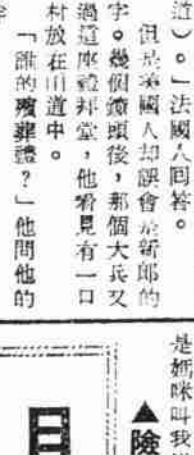 道）。」法國人回答。
但是英國人却誤會是新郎的
字。幾個鐘頭後，那個大兵又
過這座禮拜堂，他看見有一口
村放在山道中。
「誰的殯葬禮？」他問他的
是媽咪叫我
▲險
日